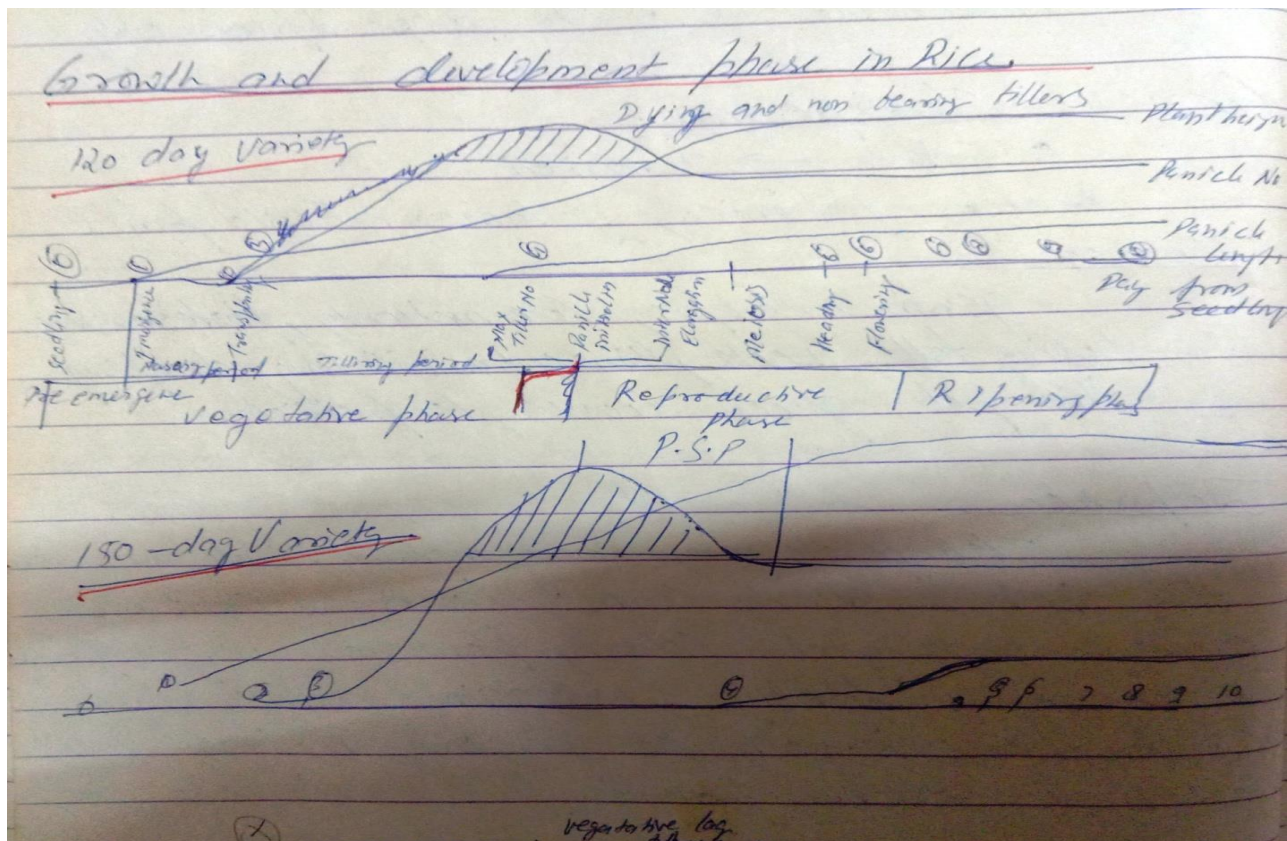 Growth and development phase in Rice.
Dying and non bearing tillers
120 day Variety
Plant heigh
Panicle No
Panicle length
Day from Seedling
Seedling
Transplanting
Max Tiller No
Panicle initiation
Internode Elongation
Meiosis
Heading
Flowering
Nursery period
Tillering period
Pre emergence
Vegetative phase
Reproductive phase
Ripening phas
P.S.P
150-day Variety
1 2 3
4
5 6 7 8 9 10
vegetative lag